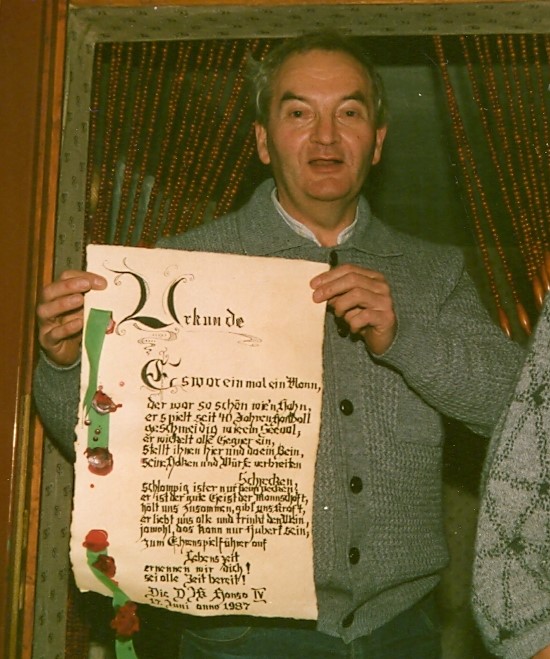 Urkunde
Es war ein mal ein Mann,
der war so schön wie'n Hahn,
er spielt seit 40 Jahren Handball
geschmeidig wie ein Seeaal,
er wickelt alle Gegner ein,
stellt ihnen hier und da ein Bein,
seine Haken und Würfe verbreiten
Schrecken
schlampig ist er nur beim decken!
er ist der gute Geist der Mannschaft,
hält uns zusammen, gibt uns Kraft,
er liebt uns alle und trinkt den Wein,
jawohl, das kann nur Hubert sein,
zum Ehrenspielführer auf
Lebens zeit
ernennen wir dich!
sei alle Zeit bereit!
Die DJK IV
17. Juni anno 1987